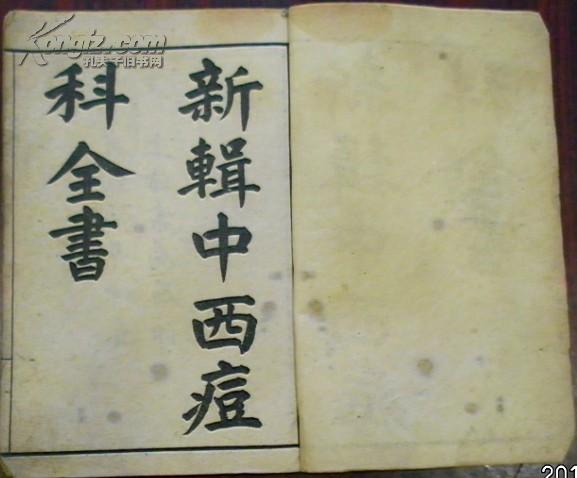 新輯中西痘
科全書
Kongfz.com
孔夫子旧书网
201